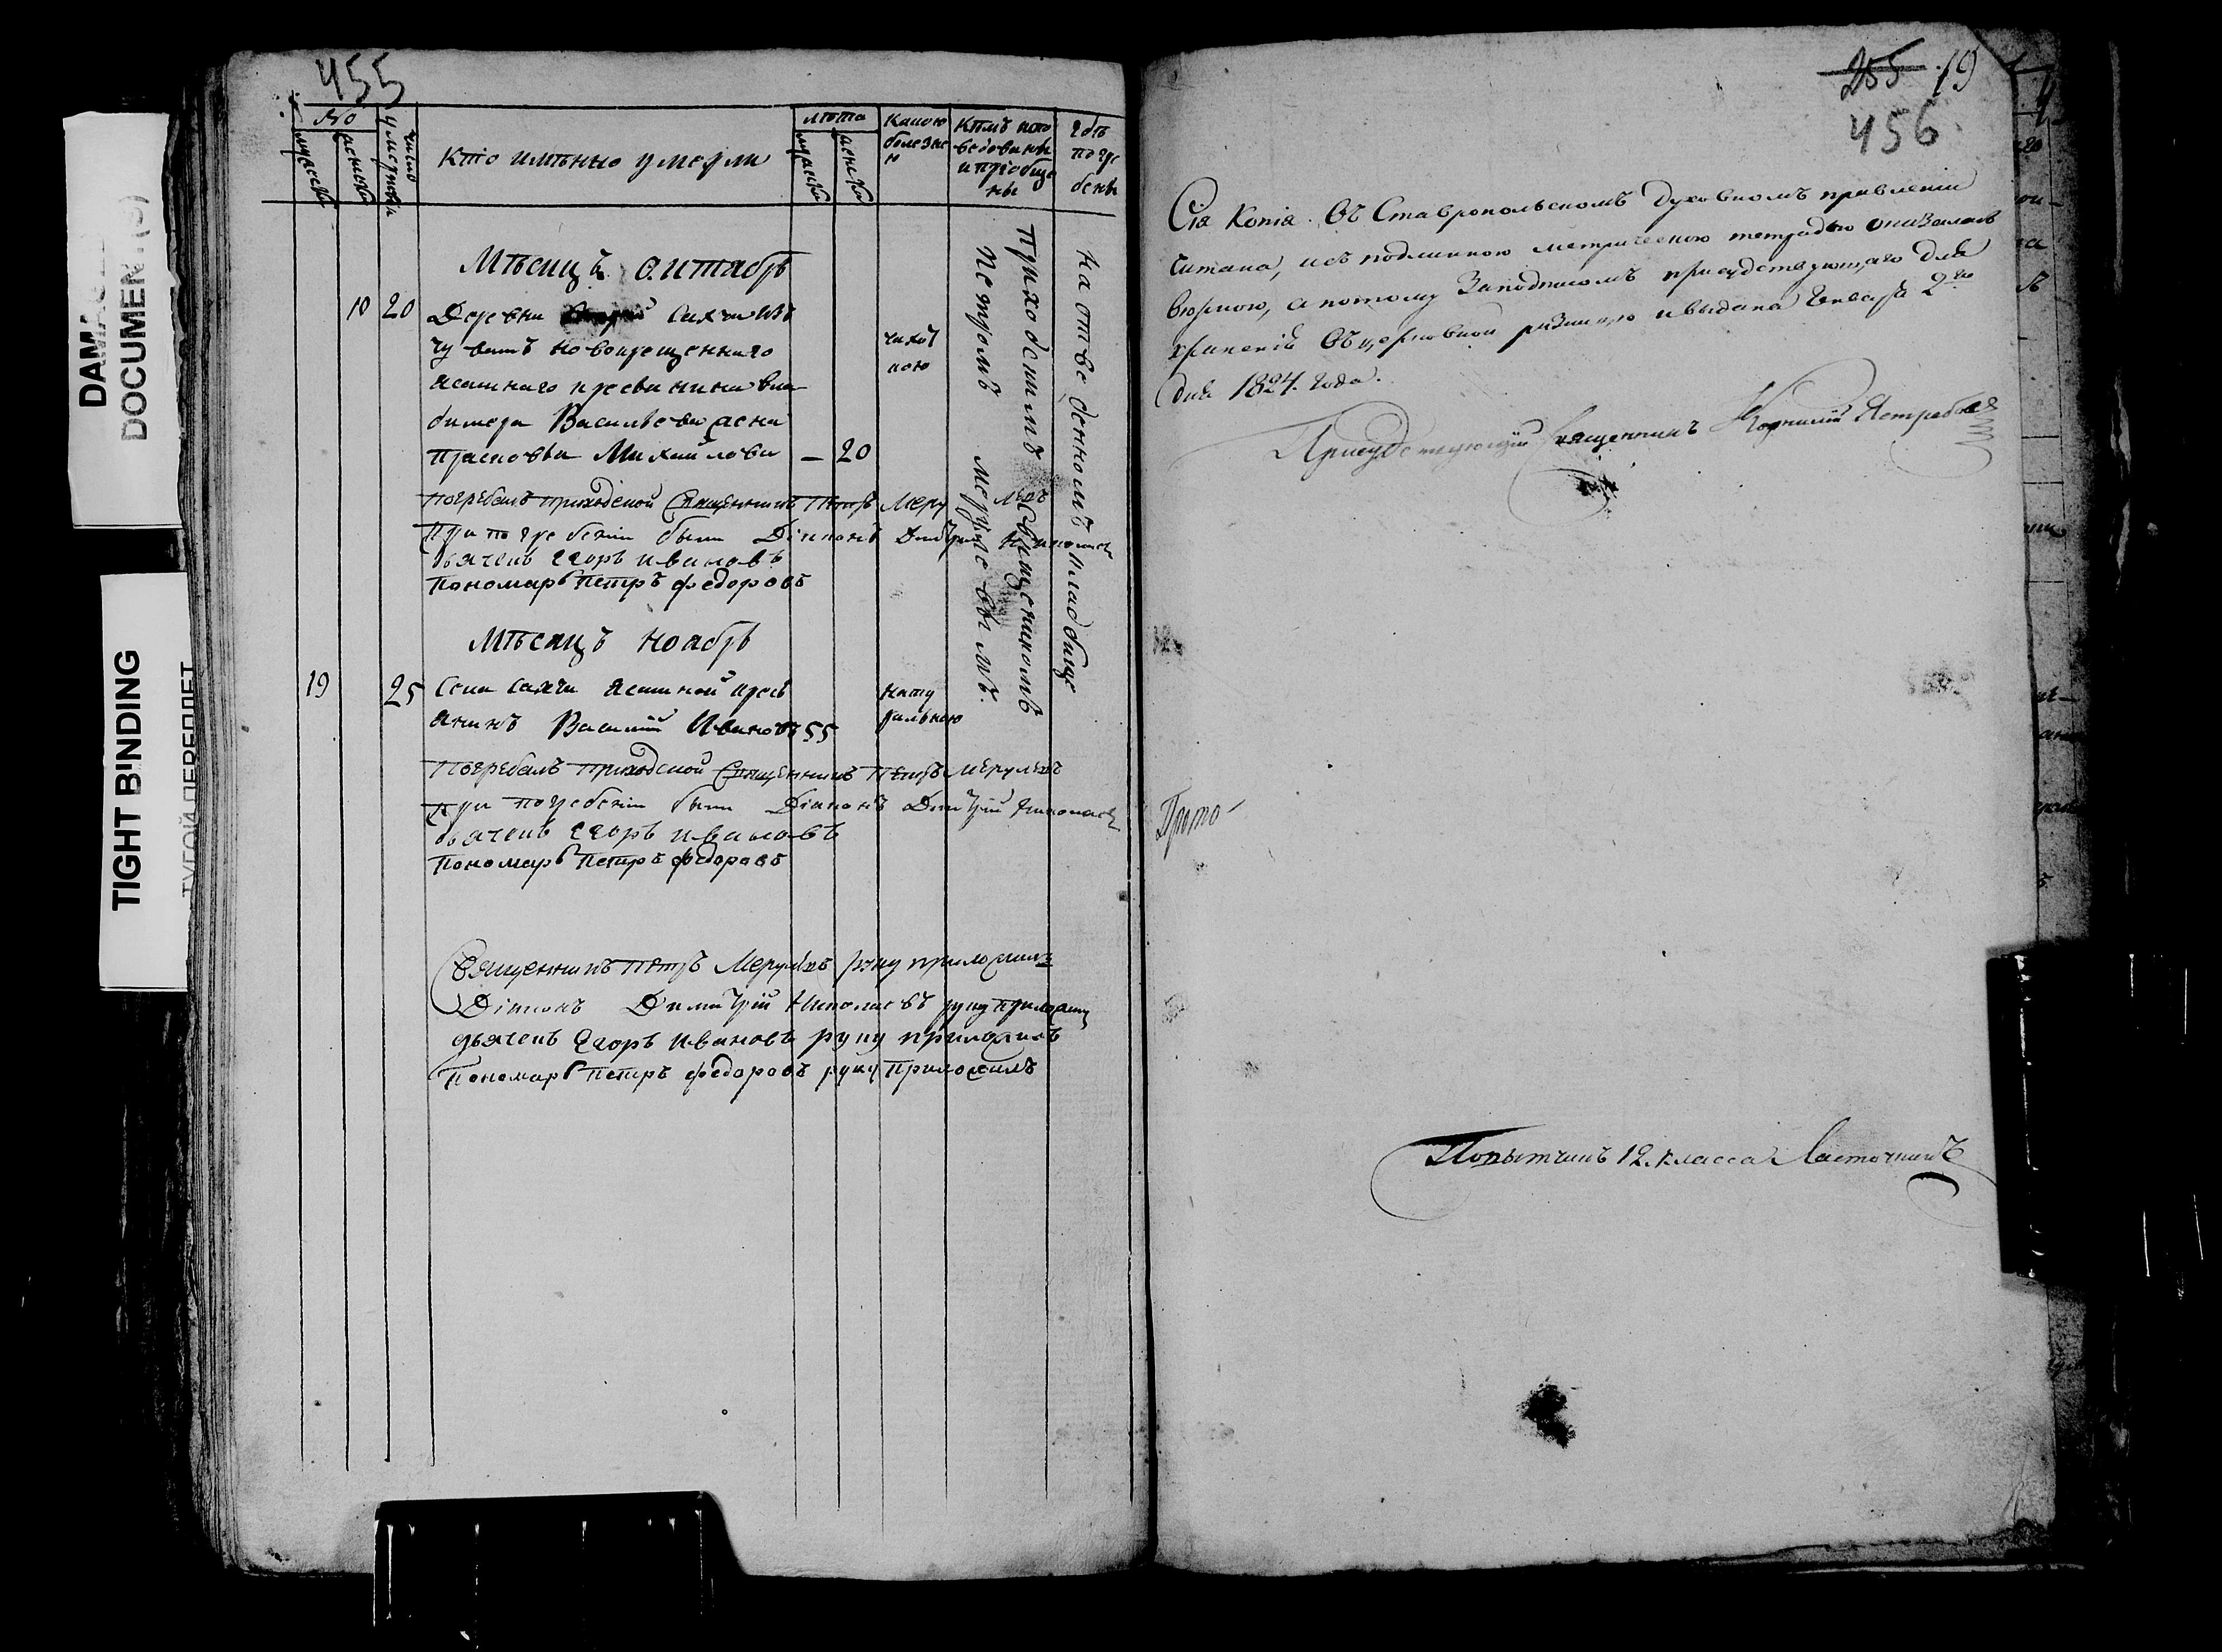 DAMAGED
DOCUMENT(S)
TIGHT BINDING
ТУГОЙ ПЕРЕПЛЕТ
455
№
мужеска
женска
число умертвія
Кто имѣнно умерли
лѣта
мужска
женска
Какою
болезне
ю
Кѣмъ испо
ведованы
и пріобще
ны
Гдѣ
погре
бены
Мѣсицъ Октабрь
10 20 Деревни Сахчи изъ
чувашъ новокрещеннаго
ясашнаго кресьянина Вла
димера Васильева жена
Прасковья Михайлова — 20
чихот
кою
Приходскимъ Священникомъ
Петромъ Меркульевымъ.
на отведенномъ кладбище
погребалъ приходской Священникъ Петръ
при погребеніи были Діяконъ Димитрій Николаевъ
дьячекъ Егоръ Ивановъ
пономарь Петръ Федоровъ
Мѣсяцъ Ноабрь
19 25 Села Сахчи ясашной кресь
янинъ Василій Ивановъ 55
нату
ральною
погребалъ приходской Священникъ Петръ
при погребеніи были Діяконъ Димитрій Николаевъ
дьячекъ Егоръ Ивановъ
пономарь Петръ Федоровъ
Священникъ Петръ руку приложилъ
Діяконъ Димитрій Николаевъ руку приложилъ
дьячекъ Егоръ Ивановъ руку приложилъ
Пономарь Петръ Федоровъ руку приложилъ
255 19
456
Сія Копія Въ Ставропольскомъ Духовномъ правленіи
читана, и съ подлинною метрическою тетрадью оказалась
вѣрною, а потому За подписомъ присудствующаго для
храненія Въ церковной ризницѣ и выдана Генваря 2го
дня 1824. года.
Присудствующій Священникъ Корнилій Ястребовъ
Прото-
Повытчикъ 12. класса Ласточкинъ